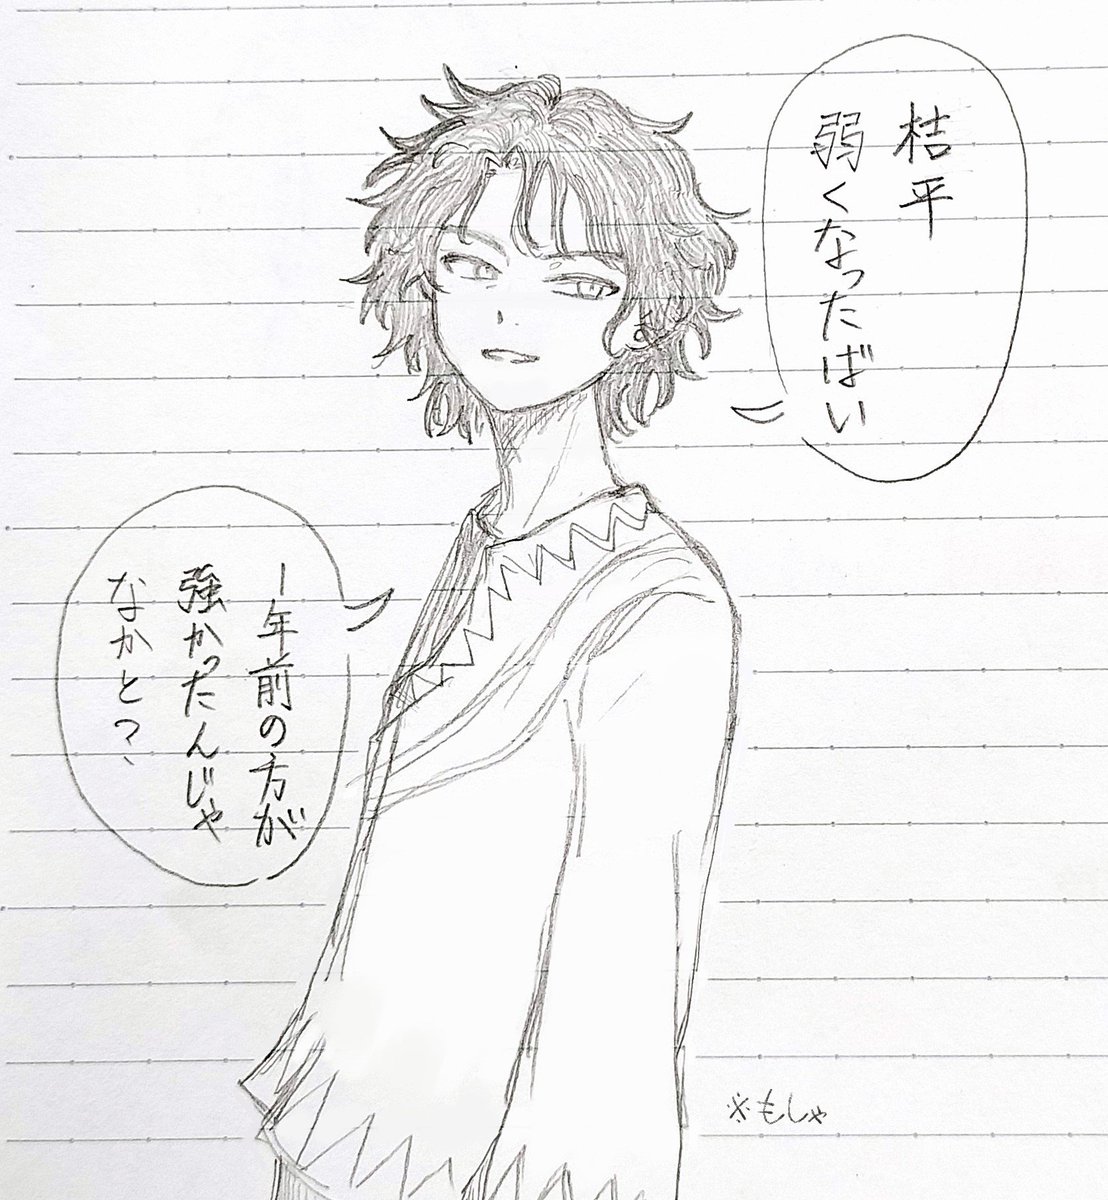 桔平
弱くなったばい
一年前の方が
強かったんじゃ
なかと?
※もしゃ